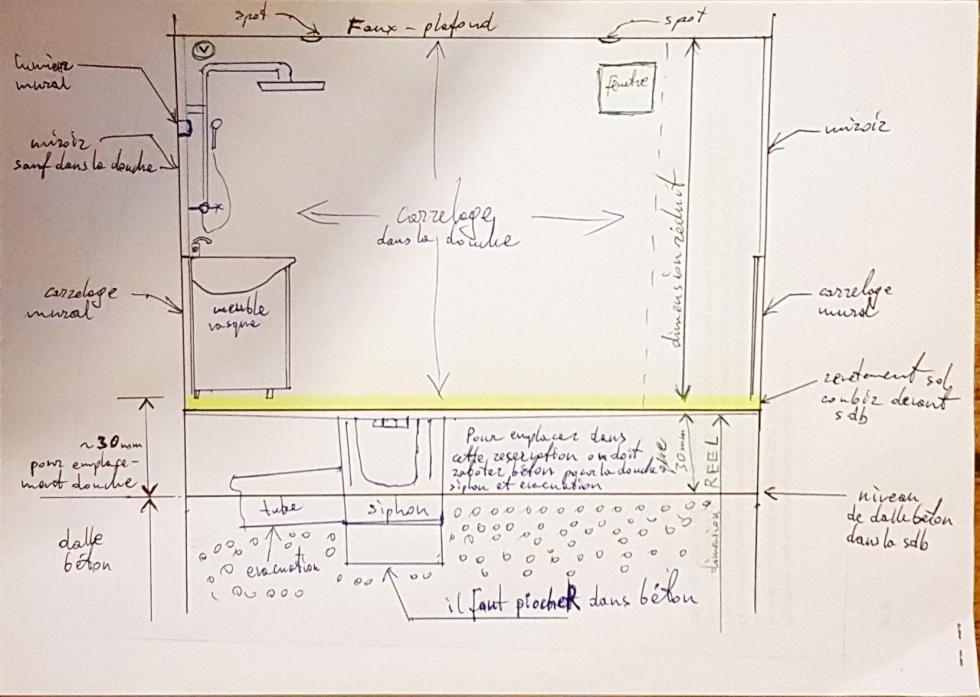 spot
Faux-plafond
spot
V
lumière
mural
fenêtre
miroir
sauf dans la douche
miroir
carrelage
dans la douche
dimension réduit
carrelage
mural
meuble
vasque
carrelage
mural
revetement sol
devant
sdb
~30mm
pour emplace-
ment douche
Pour emplacer dans
cette reservation on doit
raboter béton pour la douche
siphon et evacuation
que
30mm
dimension REEL
tube
siphon
niveau
de dalle béton
dans la sdb
dalle
béton
evacuation
il faut piocher dans béton